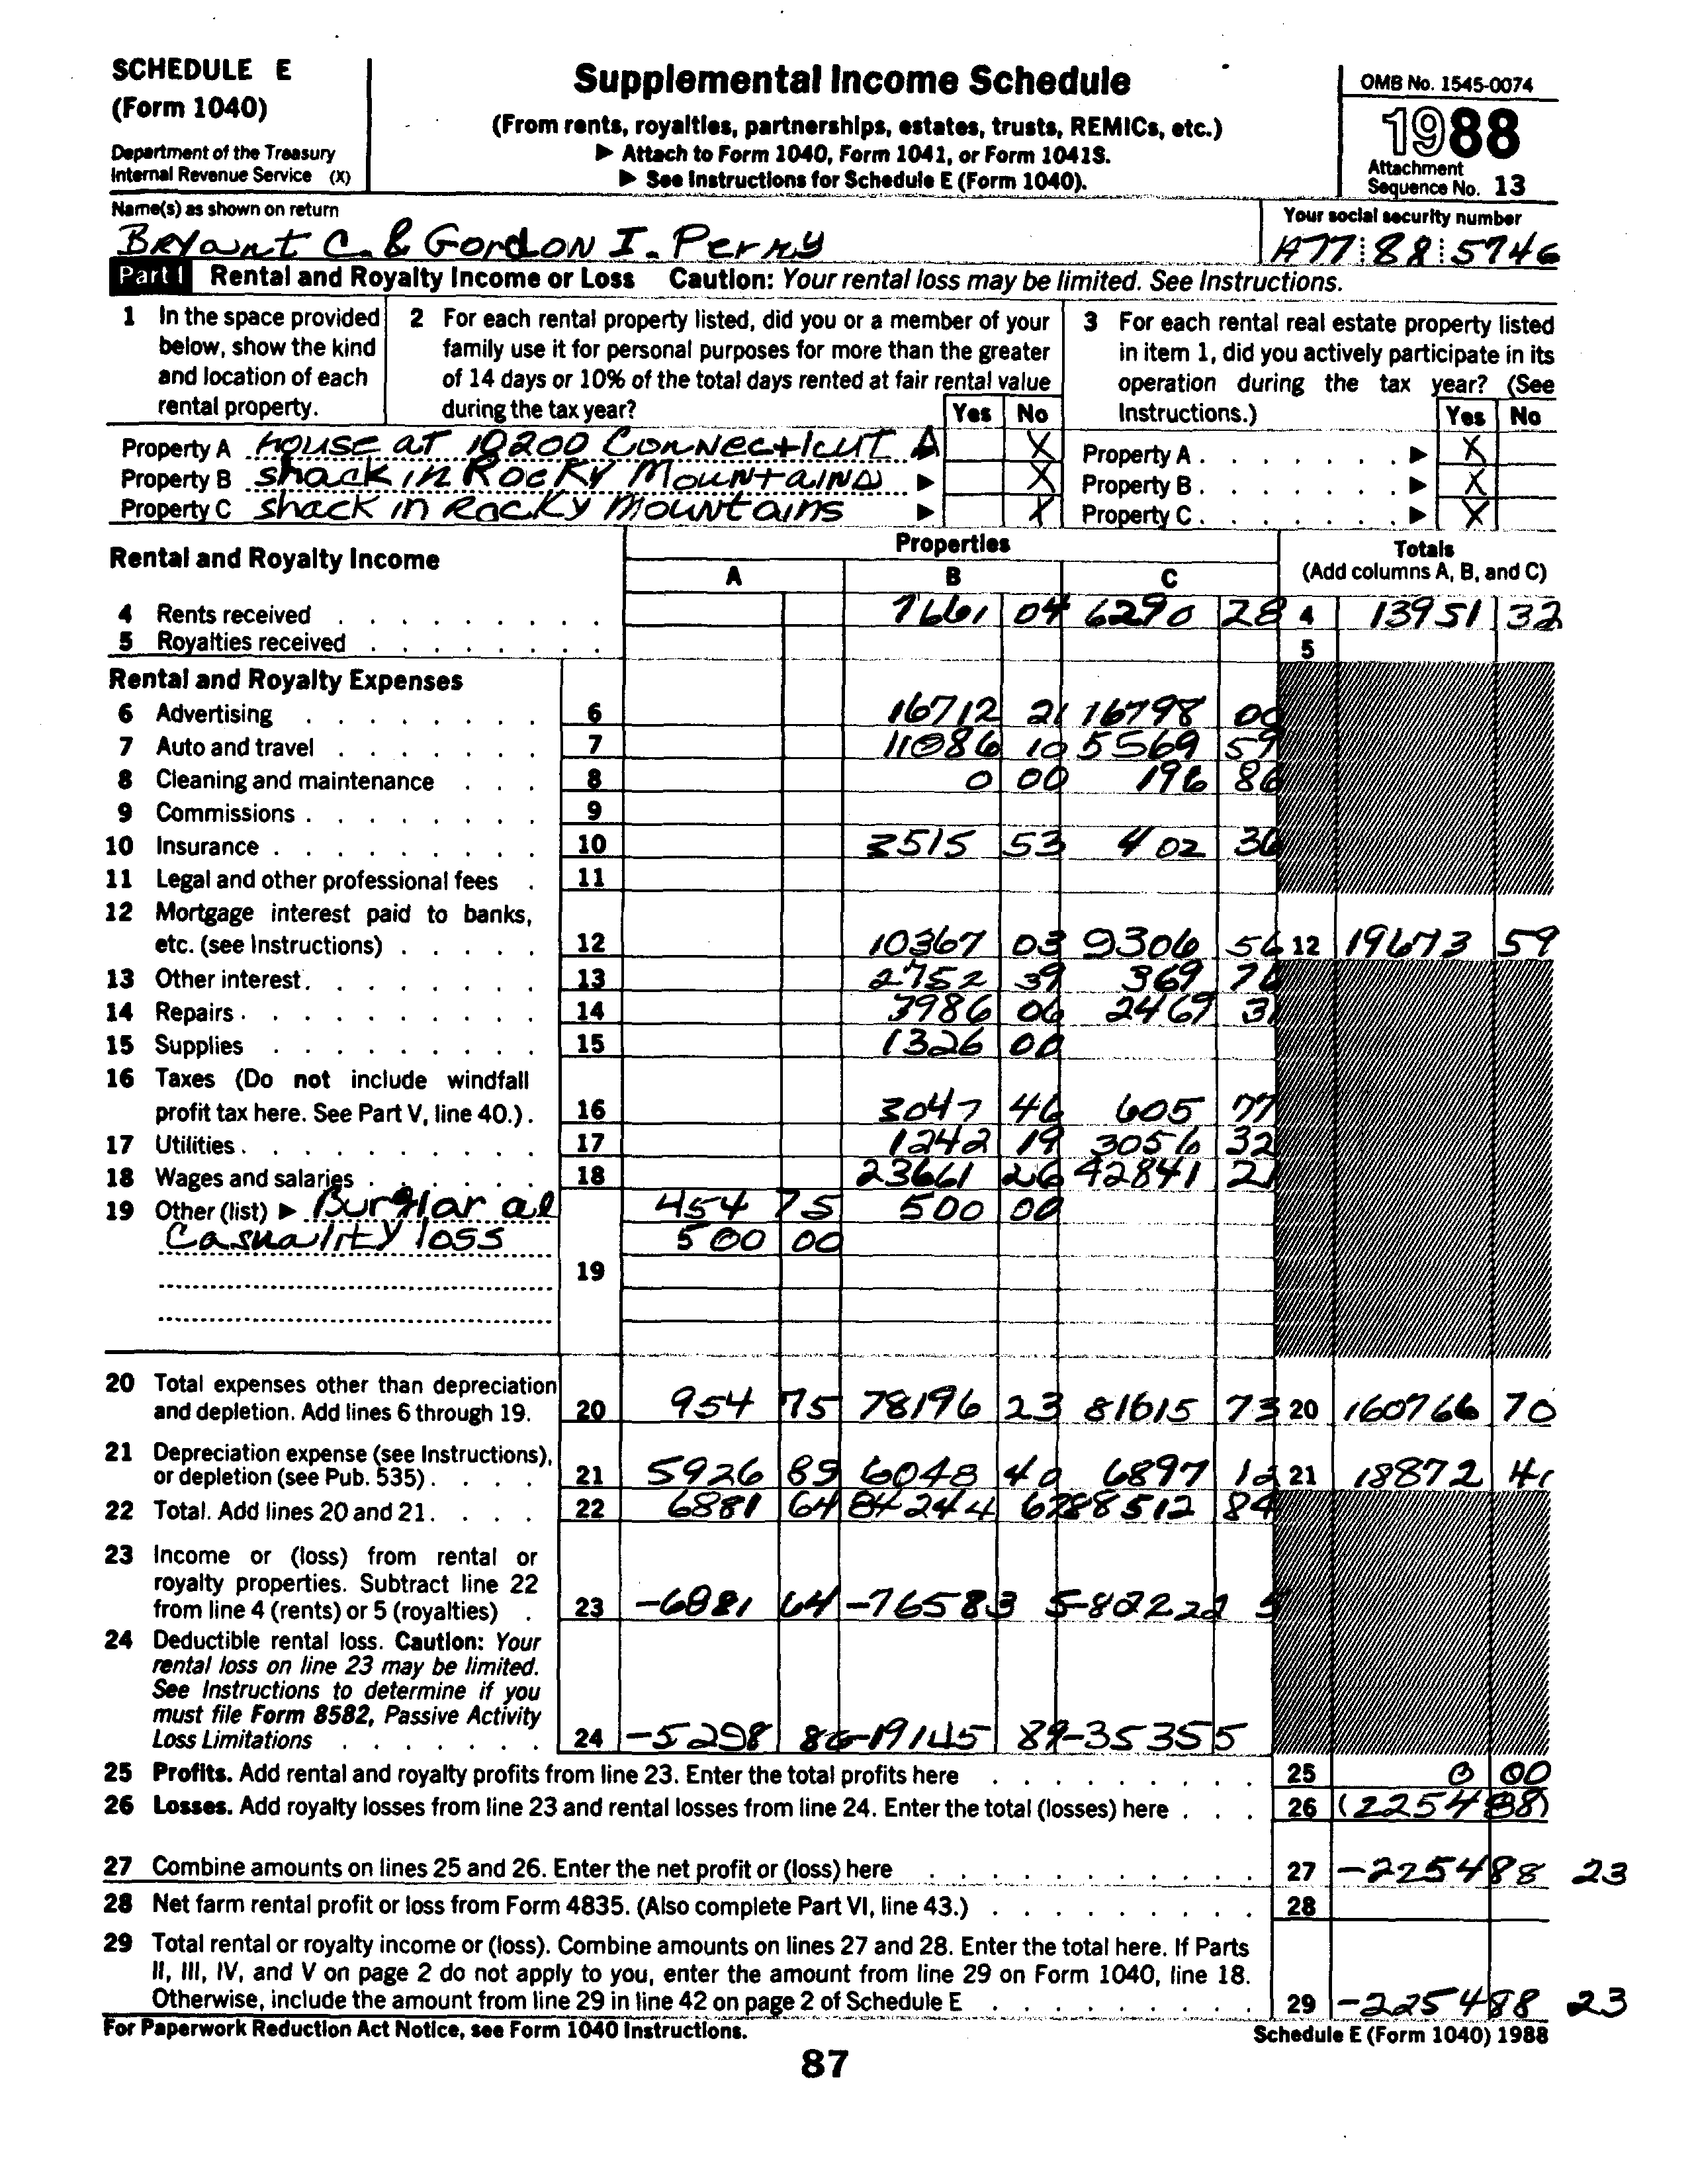 SCHEDULE E
(Form 1040)
Department of the Treasury
Internal Revenue Service (X)
Supplemental Income Schedule
(From rents, royalties, partnerships, estates, trusts, REMICs, etc.)
▶ Attach to Form 1040, Form 1041, or Form 1041S.
▶ See Instructions for Schedule E (Form 1040).
OMB No. 1545-0074
1988
Attachment
Sequence No. 13
Name(s) as shown on return
Bryant C. & Gordon I. Perry
Your social security number
A77 88 5746
Part I Rental and Royalty Income or Loss Caution: Your rental loss may be limited. See Instructions.
1 In the space provided below, show the kind and location of each rental property.
2 For each rental property listed, did you or a member of your family use it for personal purposes for more than the greater of 14 days or 10% of the total days rented at fair rental value during the tax year?
Yes No
3 For each rental real estate property listed in item 1, did you actively participate in its operation during the tax year? (See Instructions.)
Yes No
Property A House at 10200 Connecticut A X Property A . . . . . . . ▶ X
Property B shack in Rocky Mountains ▶ X Property B . . . . . . . ▶ X
Property C shack in Rocky Mountains ▶ X Property C . . . . . . . ▶ X
Rental and Royalty Income
Properties
A B C
Totals
(Add columns A, B, and C)
4 Rents received 7661 04 6290 28 4 13951 32
5 Royalties received 5
Rental and Royalty Expenses
6 Advertising 6 16712 21 16798 00
7 Auto and travel 7 11086 10 5569 59
8 Cleaning and maintenance 8 0 00 196 86
9 Commissions 9
10 Insurance 10 3515 53 402 36
11 Legal and other professional fees 11
12 Mortgage interest paid to banks,
etc. (see Instructions) 12 10367 03 9306 56 12 19673 59
13 Other interest 13 2752 39 369 7
14 Repairs 14 3986 06 2469 31
15 Supplies 15 1326 00
16 Taxes (Do not include windfall
profit tax here. See Part V, line 40.) 16 3047 46 605 77
17 Utilities 17 1242 19 3056 32
18 Wages and salaries 18 23661 26 42841 21
19 Other (list) ▶ Burglar al 454 75 500 00
Casuality loss 500 00
19
20 Total expenses other than depreciation
and depletion. Add lines 6 through 19. 20 954 75 78196 23 81615 73 20 160766 70
21 Depreciation expense (see Instructions),
or depletion (see Pub. 535) 21 5926 89 6048 40 6897 12 21 18872 41
22 Total. Add lines 20 and 21. 22 6881 64 84244 63 88512 84
23 Income or (loss) from rental or
royalty properties. Subtract line 22
from line 4 (rents) or 5 (royalties) 23 -6881 64 -76583 5 -82222 5
24 Deductible rental loss. Caution: Your
rental loss on line 23 may be limited.
See Instructions to determine if you
must file Form 8582, Passive Activity
Loss Limitations 24 -5298 86 -19145 89 -35355
25 Profits. Add rental and royalty profits from line 23. Enter the total profits here 25 0 00
26 Losses. Add royalty losses from line 23 and rental losses from line 24. Enter the total (losses) here 26 (225488)
27 Combine amounts on lines 25 and 26. Enter the net profit or (loss) here 27 -225488 23
28 Net farm rental profit or loss from Form 4835. (Also complete Part VI, line 43.) 28
29 Total rental or royalty income or (loss). Combine amounts on lines 27 and 28. Enter the total here. If Parts
II, III, IV, and V on page 2 do not apply to you, enter the amount from line 29 on Form 1040, line 18.
Otherwise, include the amount from line 29 in line 42 on page 2 of Schedule E 29 -225488 23
For Paperwork Reduction Act Notice, see Form 1040 Instructions.
Schedule E (Form 1040) 1988
87